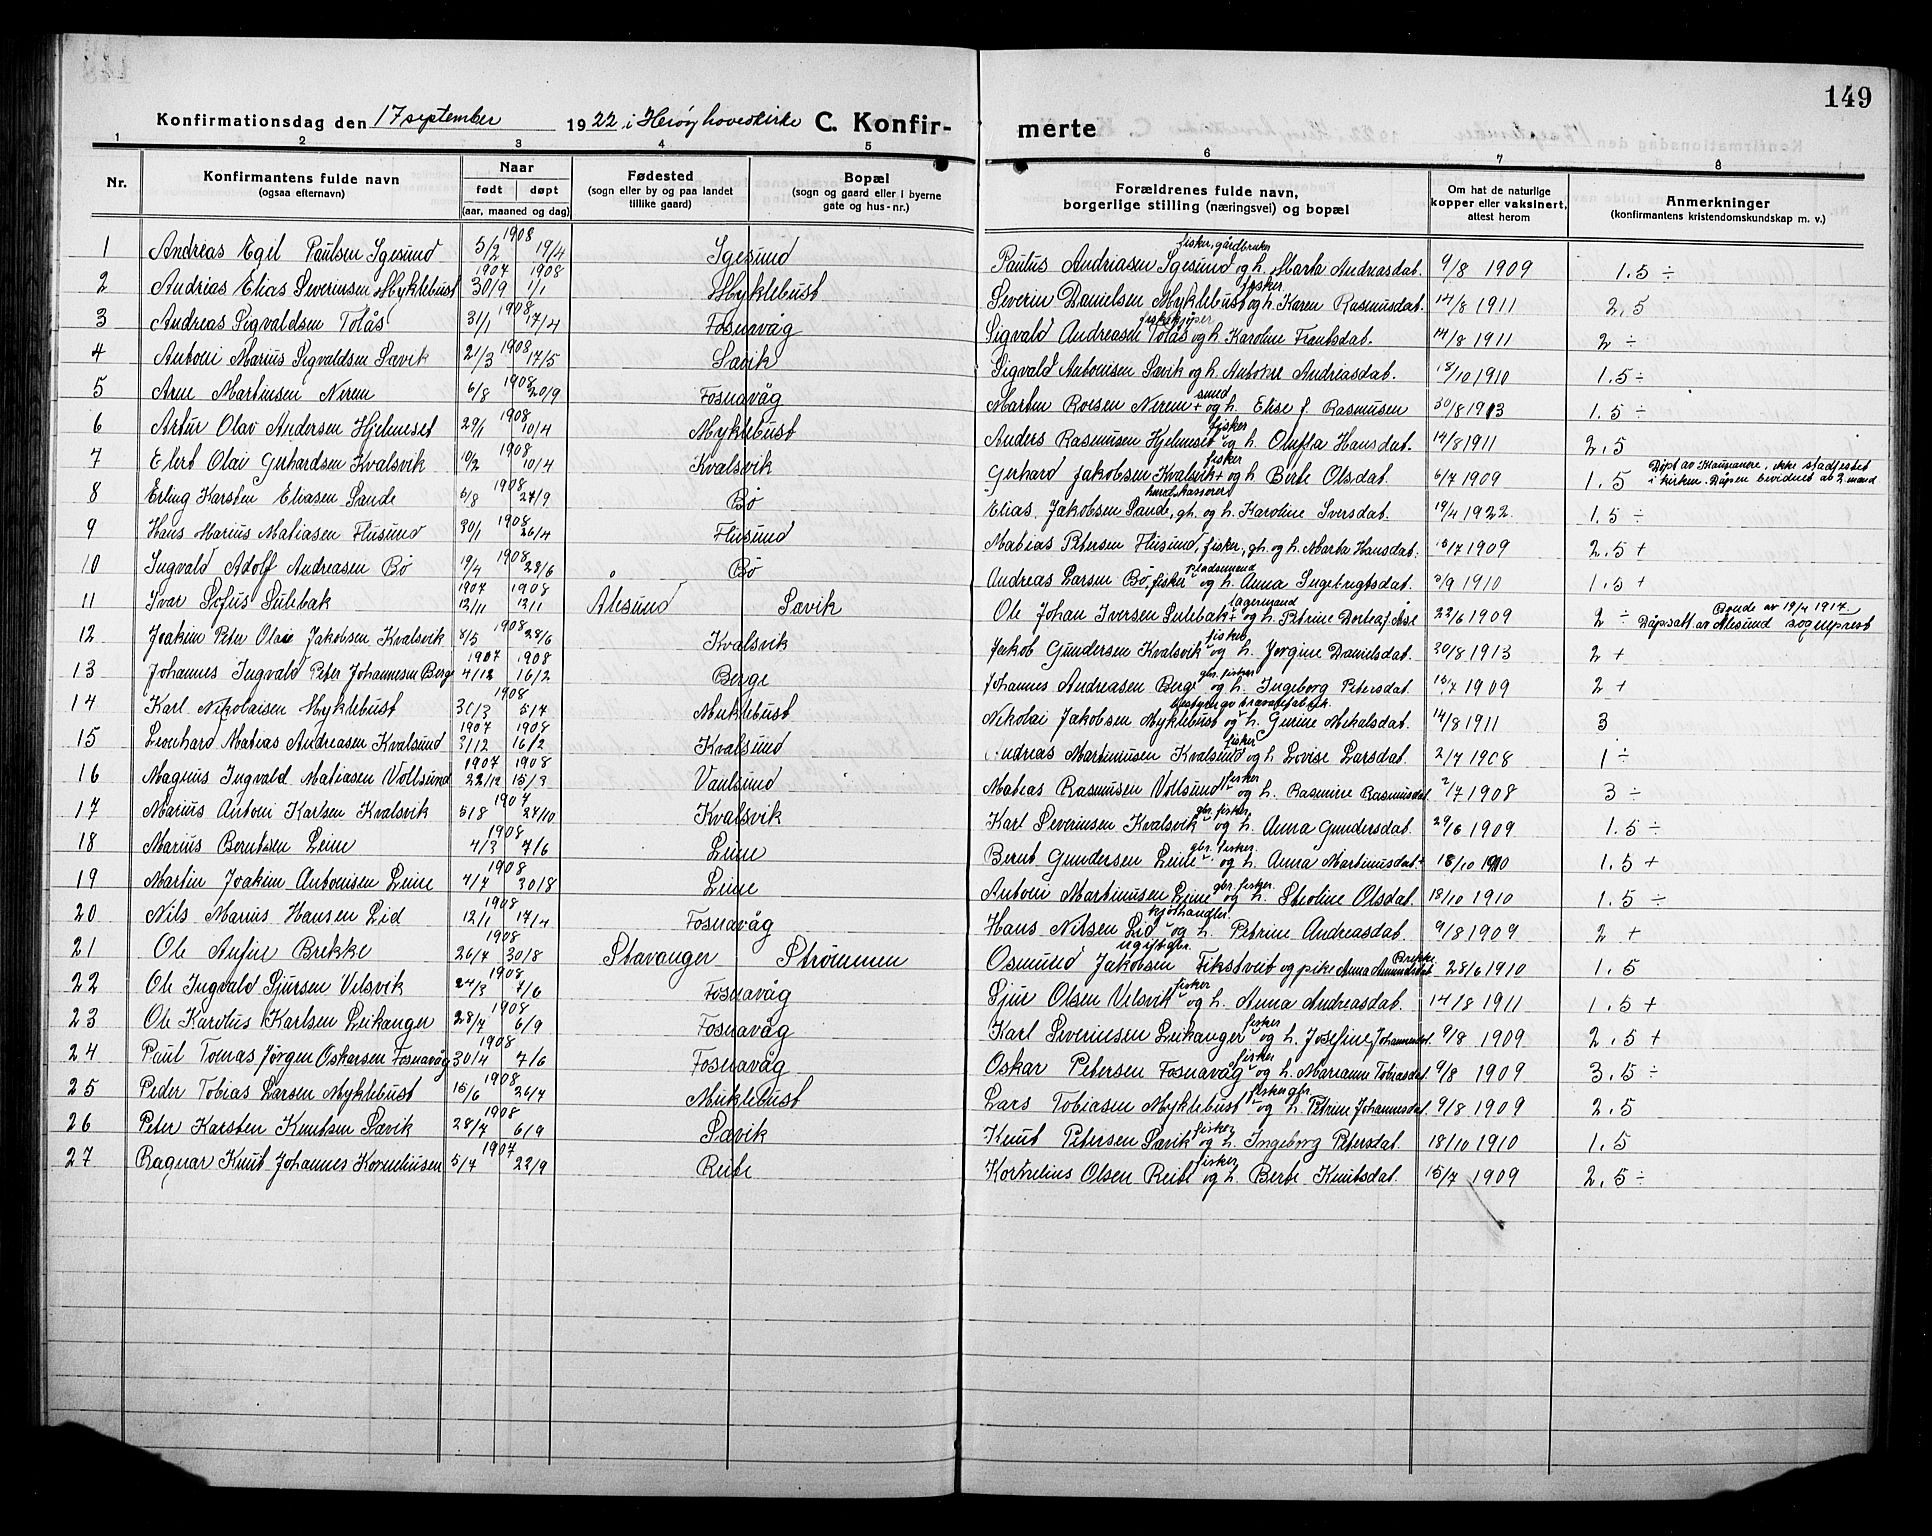 149
Konfirmationsdag den 17 september 1922 i Herøy hovedkirke C. Konfirmerte
1 2 3 4 5 6 7 8
Nr. Konfirmantens fulde navn (ogsaa efternavn) Naar født døpt (aar, maaned og dag) Fødested (sogn eller by og paa landet tillike gaard) Bopæl (sogn og gaard eller i byerne gate og hus-nr.) Forældrenes fulde navn, borgerlige stilling (næringsvei) og bopæl Om hat de naturlige kopper eller vaksinert, attest herom Anmerkninger (konfirmantens kristendomskundskap m. v.)
1 Andreas Egil Paulsen Igesund 5/2 1908 19/4 Igesund Paulus Andreasen Igesund fisker, gårdbruker og h. Marta Andreasdat. 9/8 1909 1.5 ÷
2 Andreas Elias Severinsen Myklebust 1907 30/9 1908 1/1 Myklebust Severin Danielsen Myklebust fisker og h. Karen Rasmusdat. 14/8 1911 2,5
3 Andreas Sigvaldsen Tolås 31/1 1908 17/4 Fosnavåg Sigvald Andreasen Tolås fiskekjøper og h. Karoline Frantsdat. 14/8 1911 2 ÷
4 Antoni Marius Sigvaldsen Sævik 21/3 1908 17/5 Sævik Sigvald Antonisen Sævik og h. Antoine Andreasdat. 18/10 1910 1.5 ÷
5 Arne Martinsen Neren 6/8 1908 20/9 Fosnavåg Martin Roesen Neren + smed og h. Elise f. Rasmusen 30/8 1913 1.5 ÷
6 Artur Olav Andersen Hjelmeset 29/1 1908 10/4 Myklebust Anders Rasmusen Hjelmeset fisker og h. Olufta Hansdat. 14/8 1911 2.5
7 Elert Olai Gerhardsen Kvalsvik 10/2 1908 10/4 Kvalsvik Gerhard Jakobsen Kvalsvik + fisker og h Berte Olsdat. 6/7 1909 1.5 Døpt av Klausanere, ikke stadfestet i kirken. Dåpen bevidnet av 2 mand
8 Erling Karsten Eliasen Sande 6/8 1908 27/9 Bø Elias Jakobsen Sande, herredskasserer, gh. og h. Karoline Iversdat. 19/4 1922 1.5 ÷
9 Hans Marius Matiasen Flusund 30/1 1908 26/4 Flusund Matias Petersen Flusund, fisker, gh og h. Marta Hansdat. 15/7 1909 2.5 +
10 Ingvald Adolf Andreasen Bø 19/4 1908 28/6 Bø Andreas Larsen Bø, fisker, pladsmand og h. Anna Ingebrigtsdat. 3/9 1910 1.5 +
11 Ivar Sofus Sulebak 1907 12/11 1908 12/1 Ålesund Sævik Ole Johan Iversen Sulebak + lagermand og h. Petrine Dortea f. Åse 22/6 1909 2 ÷ Bevide av 19/4 1917. Dåpsatt. av Ålesund sogneprest
12 Joakim Peter Olai Jakobsen Kvalsvik 8/5 1908 28/6 Kvalsvik Jakob Gundersen Kvalsvik fisker og h. Jørgine Danielsdat. 30/8 1913 2 +
13 Johannes Ingvald Peter Johannesen Berge 1907 4/12 1908 16/2 Berge Johannes Andreasen Berge gbr. fisker og h. Ingeborg Petersdat. 15/7 1909 2 +
14 Karl Nikolaisen Myklebust 31/3 1908 5/7 Myklebust Nikolai Jakobsen Myklebust og h. Gurine Mekalsdat. 14/8 1911 3
15 Leonhard Matias Andreasen Kvalsund 1907 3/12 1908 16/2 Kvalsund Andreas Martinusen Kvalsund fisker og h. Lovise Larsdat. 2/7 1908 1 ÷
16 Magnus Ingvald Matiasen Vollsund 1907 22/12 1908 15/3 Vaulsund Matias Rasmusen Vollsund fisker og h. Rasmine Rasmusdat 2/7 1908 3 ÷
17 Marius Antoni Karlsen Kvalsvik 5/8 1907 27/10 Kvalsvik Karl Severinsen Kvalsvik gbr. fisker og h. Anna Gundersdat. 29/6 1909 1.5 ÷
18 Marius Berntsen Leine 4/3 1908 7/6 Leine Bernt Gundersen Leine gbr. fisker og h. Anna Martinusdat + 18/10 1910 1.5 +
19 Martin Joakim Antonisen Leine 4/7 1908 30/8 Leine Antoni Martinusen Leine gbr. fisker og h. Steoline Olsdat. 18/10 1910 1.5 ÷
20 Nils Marius Hansen Lid 12/1 1908 17/4 Fosnavåg Hans Nilsen Lid kjøthandler og h. Petrine Andreasdat. 9/8 1909 2 +
21 Ole Anfin Brekke 26/7 1908 30/8 Stavanger Strømmen Osmund Jakobsen Fikstveit ugift gbr. og pike Anna Amundsdat Brekke 28/6 1910 1.5
22 Ole Ingvald Sjursen Vilsvik 24/3 1908 7/6 Fosnavåg Sjur Olsen Vilsvik fisker og h. Anna Andreasdat. 14/8 1911 1.5 +
23 Ole Karolus Karlsen Leikanger 28/7 1908 6/9 Fosnavåg Karl Severinsen Leikanger fisker og h. Josefine Johannesdat. 9/8 1909 2.5 +
24 Paul Tomas Jørgen Oskarsen Fosnavåg 30/4 1908 7/6 Fosnavåg Oskar Petersen Fosnavåg fisker og h. Marianne Tobiasdat. 9/8 1909 3.5 ÷
25 Peder Tobias Larsen Myklebust 15/6 1908 26/7 Myklebust Lars Tobiasen Myklebust fisker gbr. og h Petrine Johannesdat. 9/8 1909 2.5
26 Peter Karsten Knutsen Sævik 28/7 1908 6/9 Sævik Knut Petersen Sævik fisker og h. Ingeborg Petersdat. 18/10 1910 1.5
27 Ragnar Knut Johannes Korneliusen 5/7 1907 22/9 Reite Kornelius Olsen Reite fisker og h. Berte Knutsdat. 15/7 1909 2.5 ÷